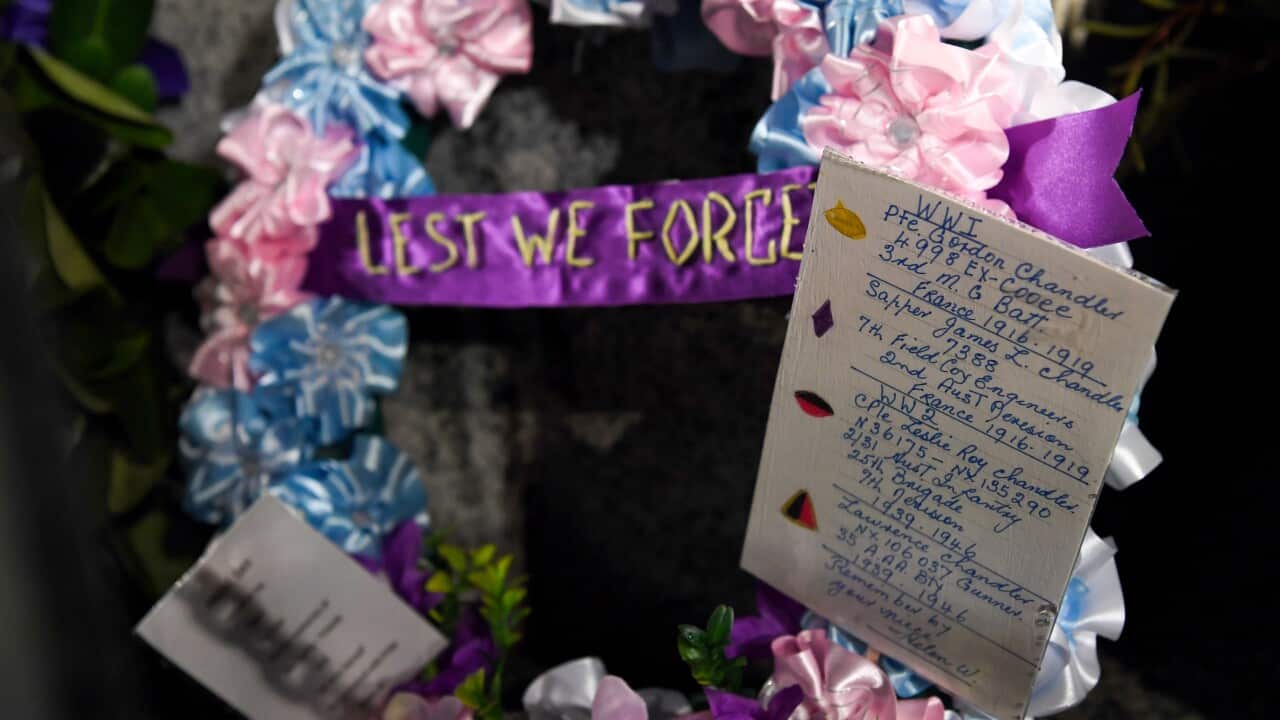 LEST WE FORGE
WWI
Pte Gordon Chandler
4998 EX-COOEE
3rd M G Batt
France 1916. 1919
Sapper James L. Chandler
7388
7th Field Coy Engineers
2nd Aust Devesion
France 1916. 1919
WW2
Cple Leslie Roy Chandler
N36175 - NX135290
2/31 Aust Infantry
25th Brigade
7th Devision
1939. 1946
Lawrence Chandler
NX106037 Gunner
35 A.A.A. BN
1939. 1946
Remember by
your niece
Helen W.